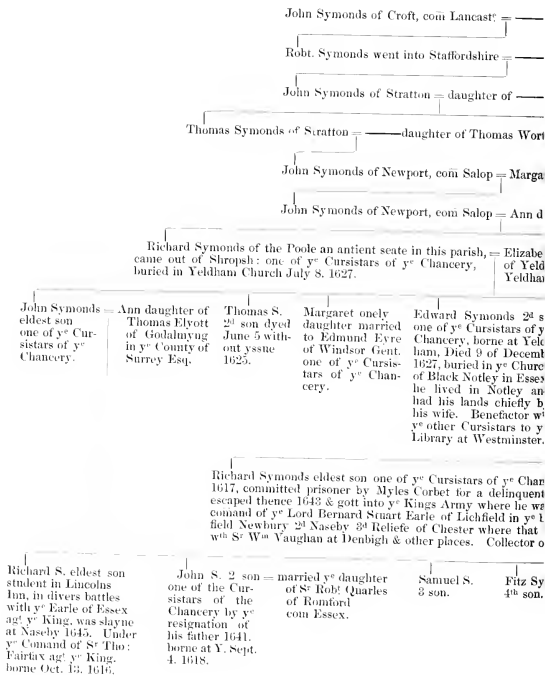 John Symonds of Croft, com Lancastᵉ =
Robt. Symonds went into Staffordshire =
John Symonds of Stratton = daughter of
Thomas Symonds of Stratton = daughter of Thomas Wort
John Symonds of Newport, com Salop = Marga
John Symonds of Newport, com Salop = Ann d
Richard Symonds of the Poole an antient seate in this parish, = Elizabe
came out of Shropsh: one of yᵉ Cursistars of yᵉ Chancery, of Yeld
buried in Yeldham Church July 8. 1627. Yeldha
John Symonds =
eldest son
one of yᵉ Cur-
sistars of yᵉ
Chancery.
Ann daughter of
Thomas Elyott
of Godalmyug
in yᵉ County of
Surrey Esq.
Thomas S.
2ᵈ son dyed
June 5 with-
out yssue
1625.
Margaret onely
daughter married
to Edmund Eyre
of Windsor Gent.
one of yᵉ Cursis-
tars of yᵉ Chan-
cery.
Edward Symonds 2ᵈ s
one of yᵉ Cursistars of y
Chancery, borne at Yeld
ham, Died 9 of Decemb
1627, buried in yᵉ Churc
of Black Notley in Essex
he lived in Notley an
had his lands chiefly b
his wife. Benefactor wᵗ
yᵉ other Cursistars to y
Library at Westminster.
Richard Symonds eldest son one of yᵉ Cursistars of yᵉ Chan
1617, committed prisoner by Myles Corbet for a delinquent
escaped thence 1643 & gott into yᵉ Kings Army where he wa
comand of yᵉ Lord Bernard Stuart Earle of Lichfield in yᵉ
field Newbury 2ᵈ Naseby 3ᵈ Reliefe of Chester where that
wᵗʰ Sʳ Wᵐ Vaughan at Denbigh & other places. Collector o
Richard S. eldest son
student in Lincolns
Inn, in divers battles
with yᵉ Earle of Essex
agᵗ yᵉ King, was slayne
at Naseby 1645. Under
yᵉ Comand of Sʳ Tho:
Fairfax agᵗ yᵉ King.
borne Oct. 13. 1616.
John S. 2 son =
one of the Cur-
sistars of the
Chancery by yᵉ
resignation of
his father 1641.
borne at Y. Sept.
4. 1618.
married yᵉ daughter
of Sʳ Robᵗ Quarles
of Romford
com Essex.
Samuel S.
3 son.
Fitz Sy
4ᵗʰ son.